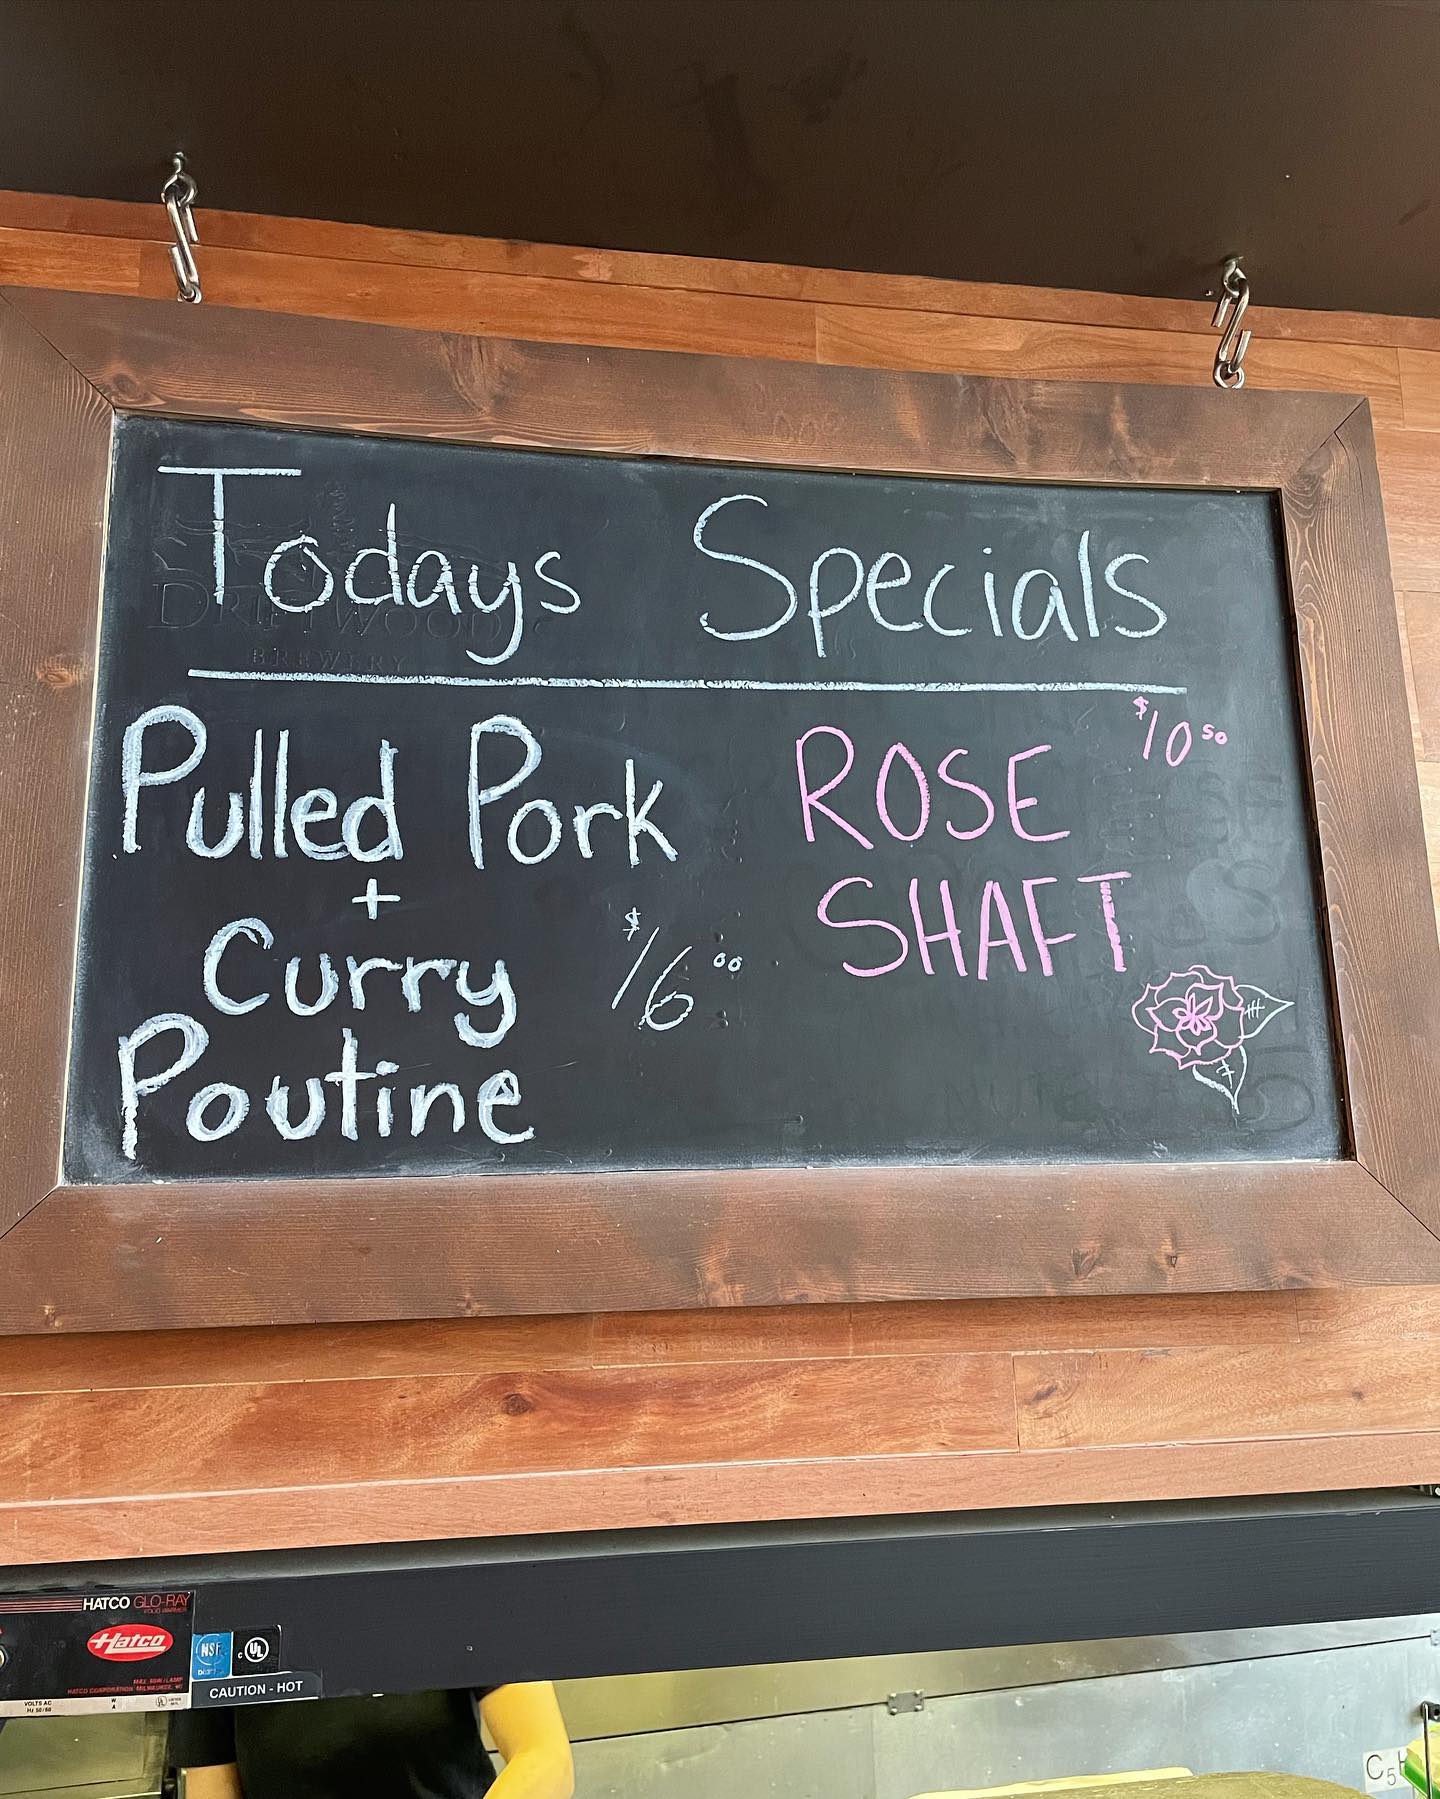 Todays Specials
DRIFTWOOD
BREWERY
Pulled Pork
+
Curry
Poutine
$16.00
ROSE
SHAFT
$10.50
HATCO GLO-RAY
FOOD WARMER
Hatco
NSF
C UL
HATCO CORPORATION MILWAUKEE, WI
VOLTS AC
Hz 50/60
W
A
CAUTION - HOT
C5H